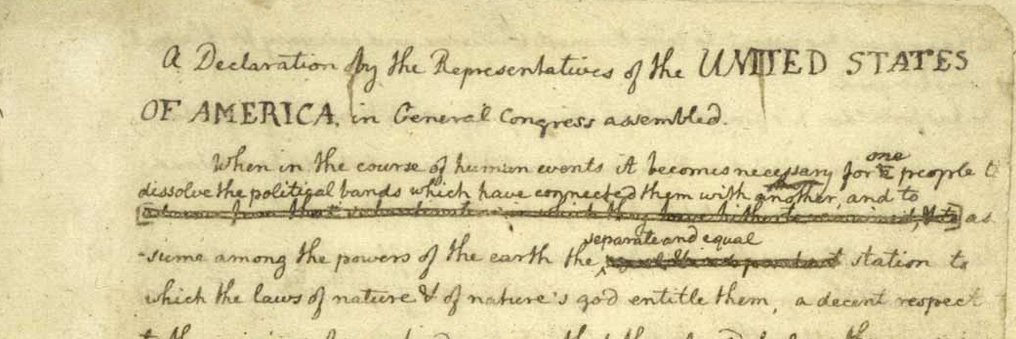 A Declaration by the Representatives of the UNITED STATES
OF AMERICA, in General Congress assembled.
When in the course of human events it becomes necessary for one people to
dissolve the political bands which have connected them with another, and to
as
separate and equal
-sume among the powers of the earth the station to
which the laws of nature & of nature's god entitle them, a decent respect